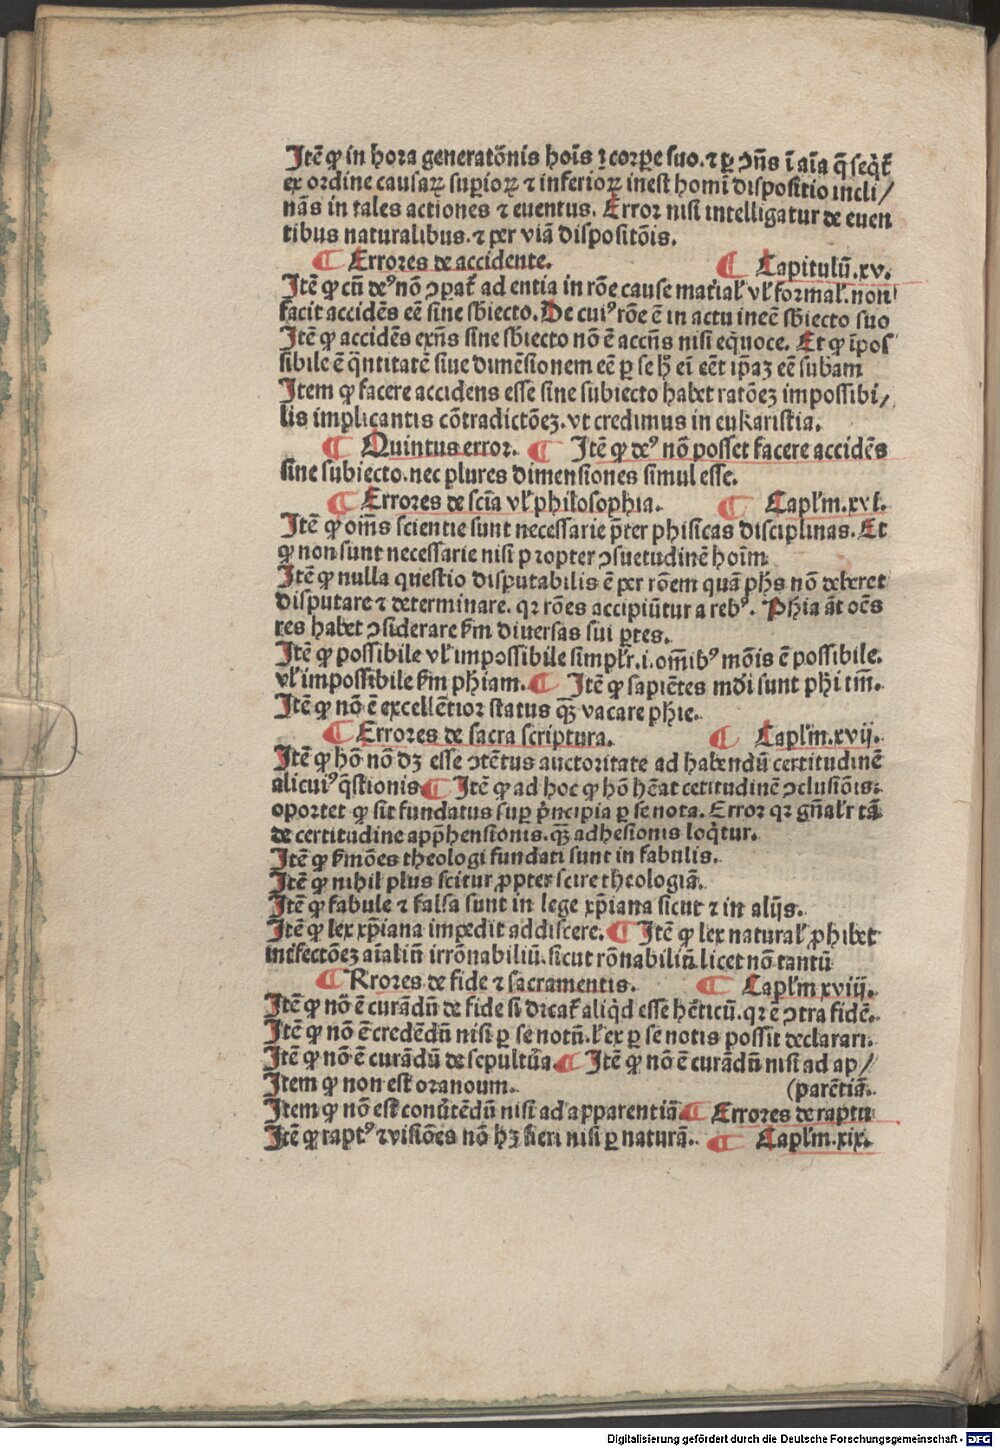 Itē ꝙ in hora generatōnis hoīs ī corꝑe suo. ⁊ ꝑ ↄñs ī aīa q̄ seq̇t᷑
ex ordine causaꝝ supioꝝ ⁊ inferioꝝ inest homī dispositio incli/
nās in tales actiones ⁊ euentus. Error nisi intelligatur de euen
tibus naturalibus. ⁊ per viā dispositōis.
¶ Errores de accidente. ¶ Capitulū .xv.
Itē ꝙ cū deꝰ nō ↄpat᷑ ad entia in rōe cause mat'ial' vl' formal'. non
facit accidēs eē sine sbiecto. De cuiꝰ rōe ē in actu ineē sbiecto suo
Itē ꝙ accidēs exñs sine sbiecto nō ē accñs nisi eq̇uoce. Et ꝙ īpos
sibile ē q̈ntitatē siue dimēsionem eē ꝑ se hͦ eī eēt ip̄aꝫ eē subām
Item ꝙ facere accidens esse sine subiecto habet ratōeꝫ impossibi/
lis implicantis cōtradictōeꝫ. vt credimus in eukaristia.
¶ Quintus error. ¶ Itē ꝙ deꝰ nō posset facere accidēs
sine subiecto. nec plures dimensiones simul esse.
¶ Errores de scīa vl' philosophia. ¶ Capl'm .xvi.
Itē ꝙ om̄s scientie sunt necessarie p̄ter phisicas disciplinas. Et
ꝙ non sunt necessarie nisi propter ↄsuetudinē hoīm
Itē ꝙ nulla questio disputabilis ē per rōem quā phs nō deberet
disputare ⁊ determinare. qꝛ rōes accipiūtur a rebꝰ. Phia āt oēs
res habet ↄsiderare ẜm diuersas sui ꝑtes.
Itē ꝙ possibile vl' impossibile simpl'r .i. om̄ibꝰ mōis ē possibile.
vl' impossibile ẜm phiam. ¶ Itē ꝙ sapiētes mūdi sunt phi tm̄.
Itē ꝙ nō ē excellētior status qꝫ vacare phie.
¶ Errores de sacra scriptura. ¶ Capl'm .xvij.
Itē ꝙ hō nō dꝫ esse ↄtētus auctoritate ad habendū certitudinē
alicuiꝰ q̄stionis ¶ Itē ꝙ ad hoc ꝙ hō hēat cetitudinē ↄclusiōis.
oportet ꝙ sit fundatus sup p̈ncipia ꝑ se nota. Error qꝛ gñal'r tā
de certitudine app̄hensionis. qꝫ adhesionis loq̄tur.
Itē ꝙ ẜmōes theologi fundati sunt in fabulis.
Itē ꝙ nihil plus scitur ꝓpter scire theologiā.
Itē ꝙ fabule ⁊ falsa sunt in lege xp̄iana sicut ⁊ in alijs.
Itē ꝙ lex xp̄iana impedit addiscere. ¶ Itē ꝙ lex natural' ꝓhibet
intfectōeꝫ aīaliū irrōnabiliū. sicut rōnabiliū. licet nō tantū
¶ Rrores de fide ⁊ sacramentis. ¶ Capl'm xviij.
Itē ꝙ nō ē curādū de fide si dicat᷑ aliq̇d esse hēticū. qꝛ ē ↄtra fidē.
Itē ꝙ nō ē credēdū nisi ꝑ se notū. l' ex ꝑ se notis possit declarari.
Itē ꝙ nō ē curādū de sepultura ¶ Itē ꝙ nō ē curādū nisi ad ap/
Item ꝙ non est oranoum. (parētiā.
Item ꝙ nō est confitēdū nisi ad apparentiā ¶ Errores de raptu
Itē ꝙ raptꝰ ⁊ visiōes nō hꝫ fieri nisi ꝑ naturā. ¶ Capl'm .xix.
Digitalisierung gefördert durch die Deutsche Forschungsgemeinschaft - DFG